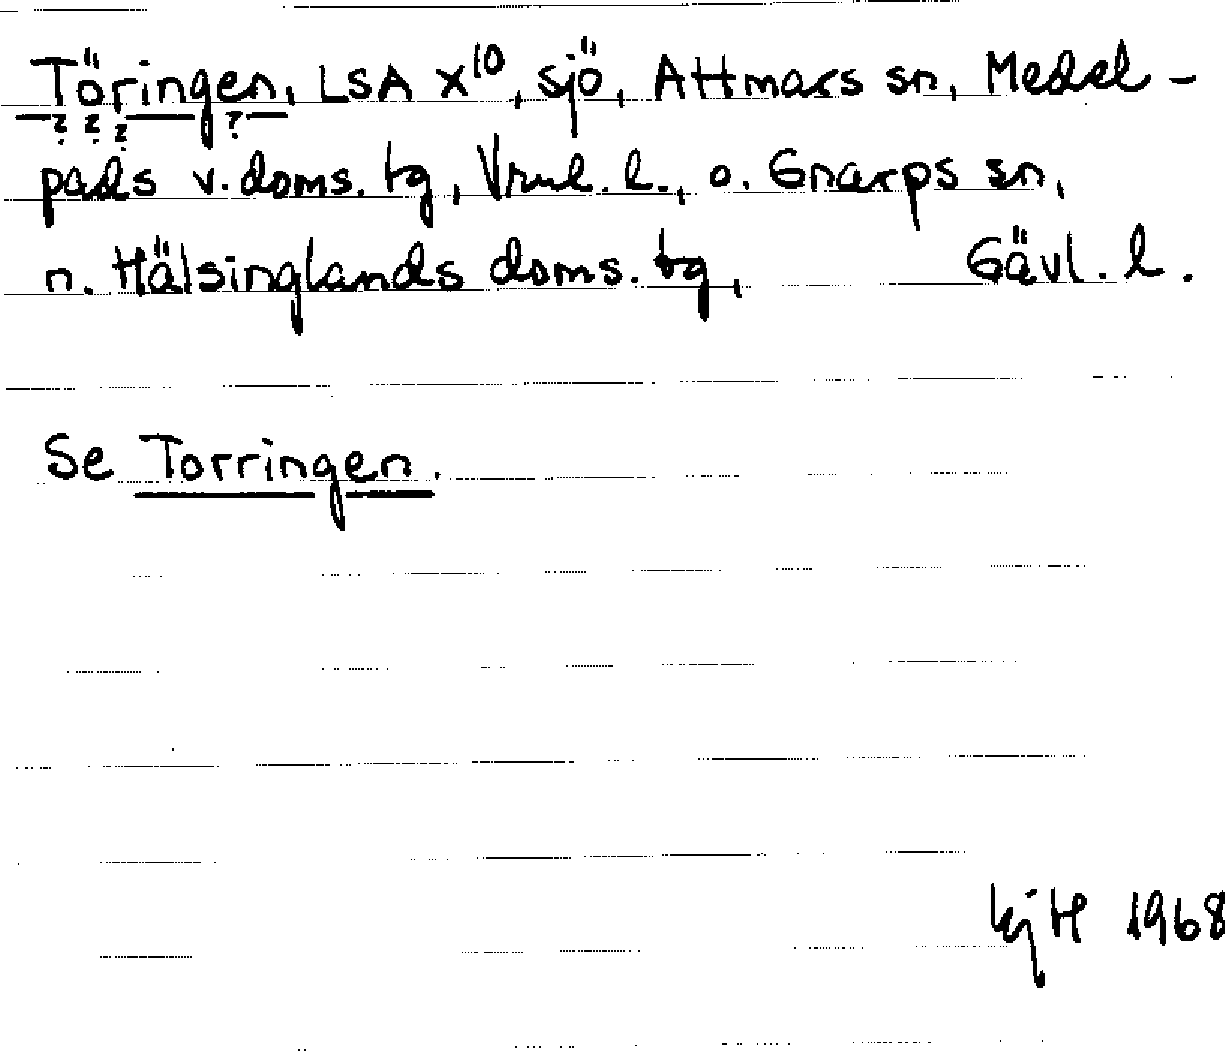 Töringen, LSA X10, sjö, Attmars sn, Medel-
? ? ? ?
pads v. doms. tg, Vrnl. l., o. Gnarps sn,
n. Hälsinglands doms. tg, Gävl. l.
Se Torringen.
KjH 1968